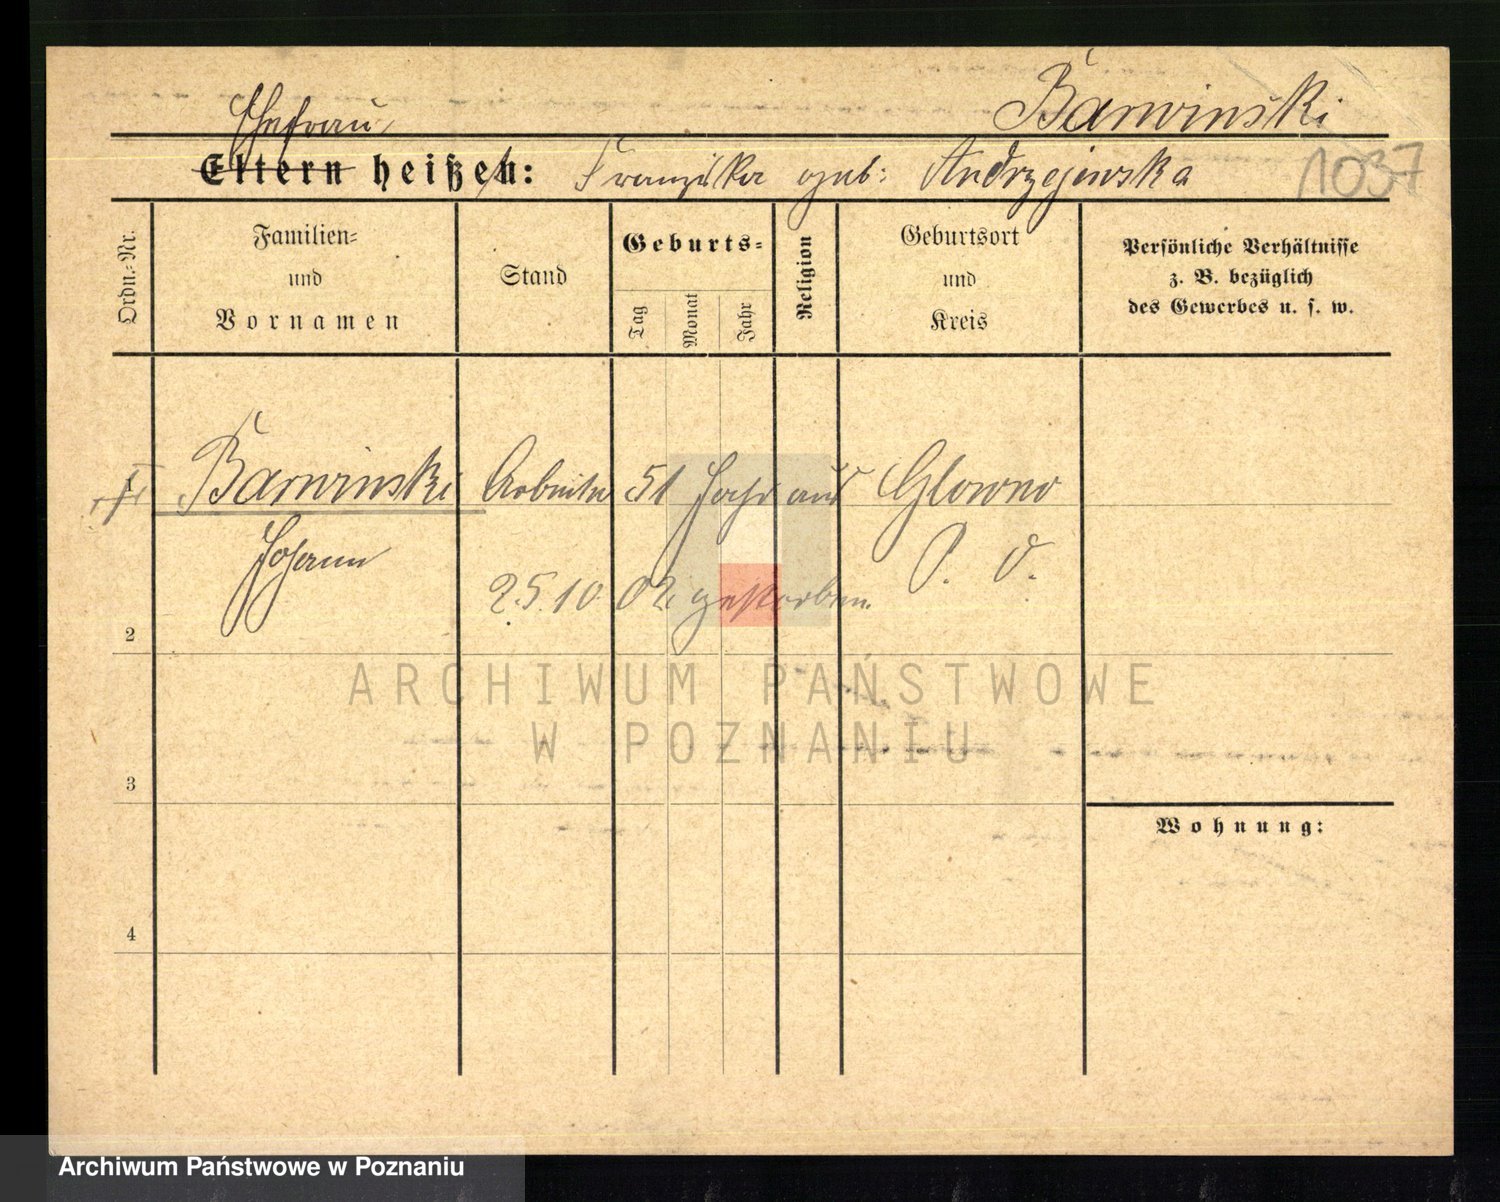 Barwinski
Ehefrau
Eltern heißen: Franziska geb: Andrzejewska
1037
Ordn.-Nr.
Familien-
und
Vornamen
Stand
Geburts-
Tag
Monat
Jahr
Religion
Geburtsort
und
Kreis
Persönliche Verhältnisse
z. B. bezüglich
des Gewerbes u. s. w.
1 Barwinski Arbeiter 51 Jahr aus Glowno
Johann P. O.
25.10 02 gestorben.
2
ARCHIWUM PAŃSTWOWE
W POZNANIU
3
Wohnung:
4
Archiwum Państwowe w Poznaniu